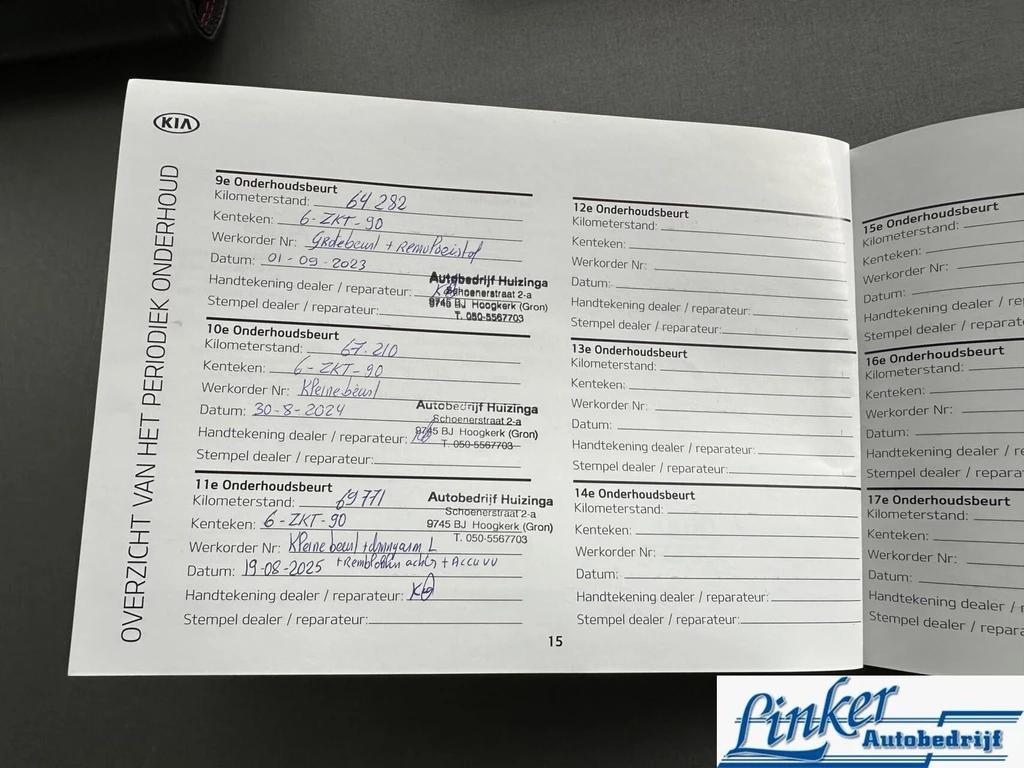 KIA
OVERZICHT VAN HET PERIODIEK ONDERHOUD
9e Onderhoudsbeurt
Kilometerstand: 64 282
Kenteken: 6-ZKT-90
Werkorder Nr: Grotebeurt + Remvloeistof
Datum: 01-09-2023
Handtekening dealer / reparateur:
Stempel dealer / reparateur:
Autobedrijf Huizinga
Schoenerstraat 2-a
9745 BJ Hoogkerk (Gron)
T. 050-5567703
10e Onderhoudsbeurt
Kilometerstand: 67.210
Kenteken: 6-ZKT-90
Werkorder Nr: Kleine beurt
Datum: 30-8-2024
Handtekening dealer / reparateur:
Stempel dealer / reparateur:
Autobedrijf Huizinga
Schoenerstraat 2-a
9745 BJ Hoogkerk (Gron)
T. 050-5567703
11e Onderhoudsbeurt
Kilometerstand: 69771
Kenteken: 6-ZKT-90
Werkorder Nr: Kleine beurt + draagarm L
Datum: 19-08-2025 + Remblokken achter + Accu VV
Handtekening dealer / reparateur:
Stempel dealer / reparateur:
Autobedrijf Huizinga
Schoenerstraat 2-a
9745 BJ Hoogkerk (Gron)
T. 050-5567703
12e Onderhoudsbeurt
Kilometerstand:
Kenteken:
Werkorder Nr:
Datum:
Handtekening dealer / reparateur:
Stempel dealer / reparateur:
13e Onderhoudsbeurt
Kilometerstand:
Kenteken:
Werkorder Nr:
Datum:
Handtekening dealer / reparateur:
Stempel dealer / reparateur:
14e Onderhoudsbeurt
Kilometerstand:
Kenteken:
Werkorder Nr:
Datum:
Handtekening dealer / reparateur:
Stempel dealer / reparateur:
15
15e Onderhoudsbeurt
Kilometerstand:
Kenteken:
Werkorder Nr:
Datum:
Handtekening dealer / re
Stempel dealer / reparat
16e Onderhoudsbeurt
Kilometerstand:
Kenteken:
Werkorder Nr:
Datum:
Handtekening dealer / r
Stempel dealer / repara
17e Onderhoudsbeurt
Kilometerstand:
Kenteken:
Werkorder Nr:
Datum:
Handtekening dealer /
Stempel dealer / repara
Linker
Autobedrijf